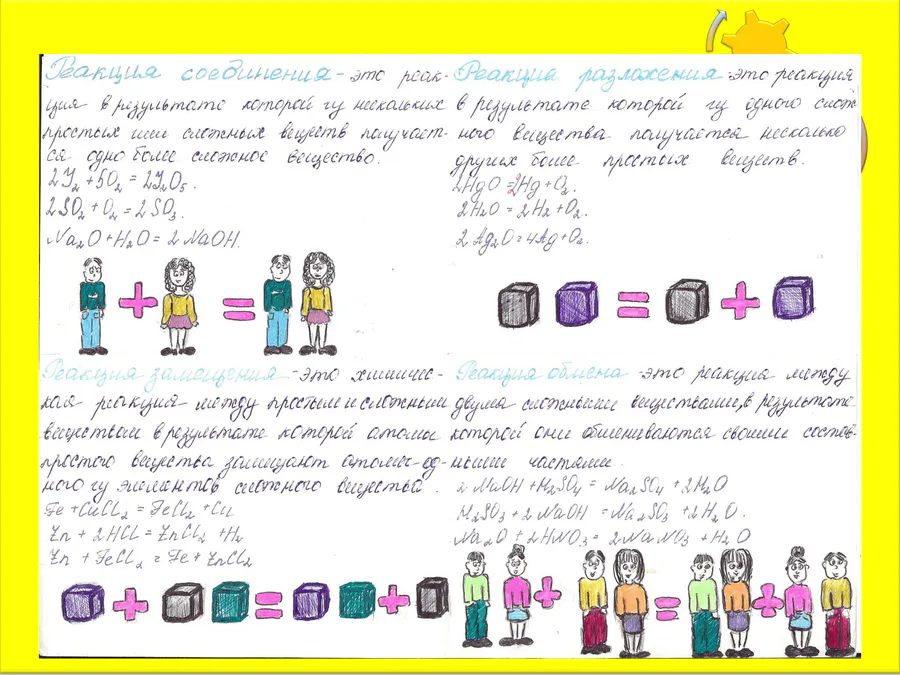 Реакция соединения - это реак-
ция в результате которой из нескольких
простых или сложных веществ получает-
ся одно более сложное вещество.
2J₂ + 5O₂ = 2J₂O₅.
2SO₂ + O₂ = 2SO₃.
Na₂O + H₂O = 2NaOH.
Реакция разложения - это реакция
в результате которой из одного слож
ного вещества получается несколько
других более простых веществ.
2HgO = 2Hg + O₂.
2H₂O = 2H₂ + O₂.
2Ag₂O = 4Ag + O₂.
+ =
= +
Реакция замещения - это химичес-
кая реакция между простым и сложным
веществом в результате которой атомы
простого вещества замещают атомы од-
ного из элементов сложного вещества.
Fe + CuCl₂ = FeCl₂ + Cu
Zn + 2HCl = ZnCl₂ + H₂
Zn + FeCl₂ = Fe + ZnCl₂
+ = +
Реакция обмена - это реакция между
двумя сложными веществами, в результате
которой они обмениваются своими состав-
ными частями.
2NaOH + H₂SO₄ = Na₂SO₄ + 2H₂O
H₂SO₃ + 2NaOH = Na₂SO₃ + 2H₂O.
Na₂O + 2HNO₃ = 2NaNO₃ + H₂O
+ = +